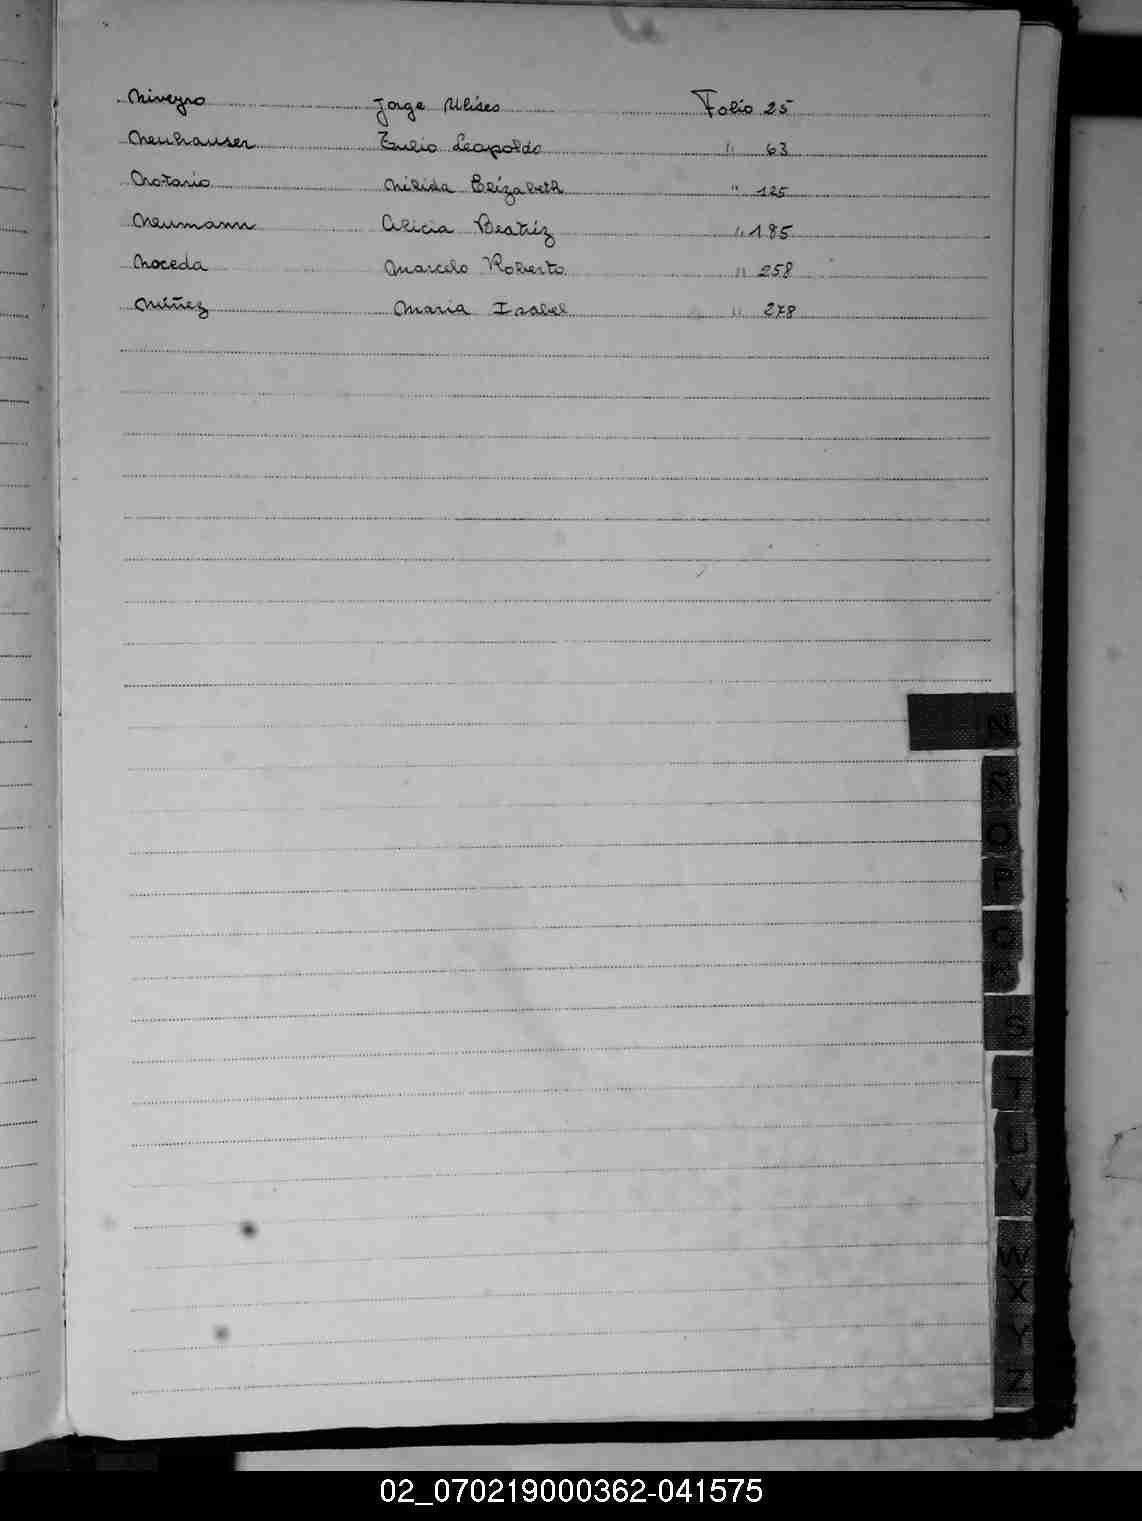 Niveyro Jorge Ulises Folio 25
Neuhauser Tulio Leopoldo " 63
Notario Nélida Elizabeth " 125
Neumann Alicia Beatríz " 185
Noceda Marcelo Roberto " 258
Núñez Maria Isabel " 278
N
Ñ
O
P
Q
R
S
T
U
V
W
X
Y
Z
02_070219000362-041575